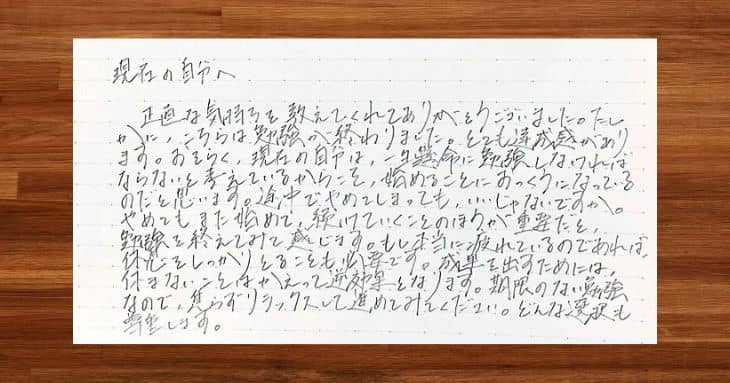 現在の自分へ
正直な気持ちを教えてくれてありがとうございました。たし
かに、こちらは勉強が終わりました。とても達成感があり
ます。おそらく、現在の自分は、一生懸命に勉強しなければ
ならないと考えているからこそ、始めることにおっくうになっている
のだと思います。途中でやめてしまっても、いいじゃないですか。
やめてもまた始めて、続けていくことのほうが重要だと、
勉強を終えてみて感じます。もし本当に疲れているのであれば、
休息をしっかりとることも必要です。成果を出すためには、
休まないことはかえって逆効果となります。期限のない勉強
なので、焦らずリラックスして進めてみてください。どんな選択も
尊重します。